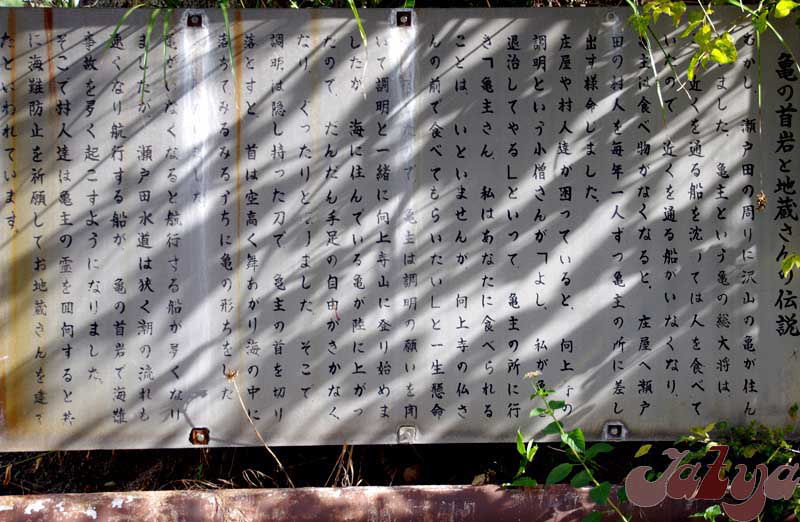 亀の首岩と地蔵さんの伝説
むかし、瀬戸田の周りに沢山の亀が住ん
ました。亀主という亀の総大将は
近くを通る船を沈 ては人を食べて
いたので 近くを通る船がいなくなり、
亀主は食べ物がなくなると、庄屋へ瀬戸
田の村人を毎年一人ずつ亀主の所に差し
出す様命じました。
庄屋や村人達が困っていると、向上 の
調明という小僧さんが「よし、私が亀
退治してやる」といって 亀主の所に行
き「亀主さん、私はあなたに食べられる
ことは、いといませんが、向上寺の仏さ
んの前で食べてもらいたい」と一生懸命
で 亀主は調明の願いを聞
いて調明と一緒に向上寺山に登り始めま
したが、海に住んでいる亀が陸に上がっ
たので、だんだん手足の自由がきかなく
なり、ぐったりとなりました。そこで
調明は隠し持った刀で 亀主の首を切り
落とすと、首は空高く舞あがり海の中に
落ちてみるみるうちに亀の形ちをした
ました
亀がいなくなると航行する船が多くなり
ましたが、瀬戸田水道は狭く潮の流れも
速くなり航行する船が、亀の首岩で海難
事故を多く起こすようになりました。
そこで村人達は亀主の霊を回向すると共
に海難防止を祈願してお地蔵さんを建
たといわれています。
JaLya